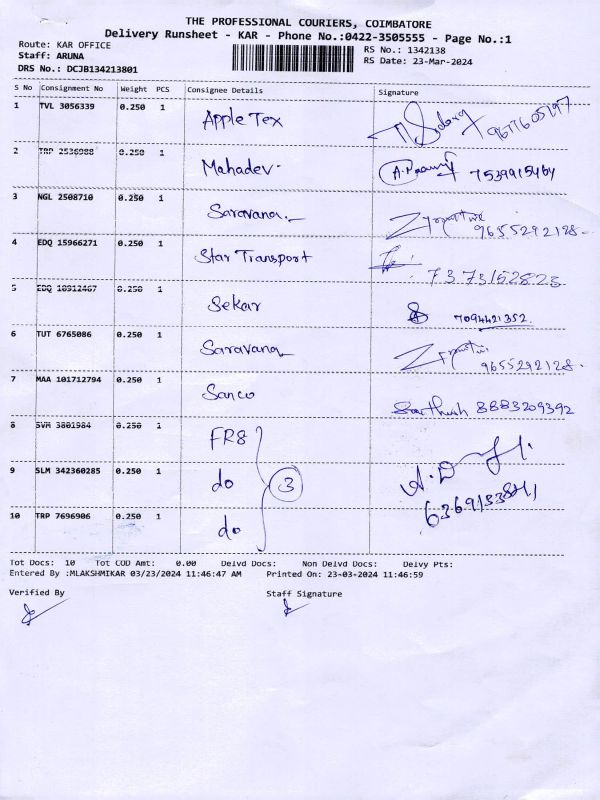 THE PROFESSIONAL COURIERS, COIMBATORE
Delivery Runsheet - KAR - Phone No.:0422-3505555 - Page No.:1
Route: KAR OFFICE
RS No.: 1342138
Staff: ARUNA
RS Date: 23-Mar-2024
DRS No.: DCJB134213801
S No Consignment No Weight PCS Consignee Details Signature
1 TVL 3056339 0.250 1 Apple Tex 9677605197
2 TRP 2536988 0.250 1 Mahadev 7539915464
3 NGL 2508710 0.250 1 Saravana 9655292128
4 EDQ 15966271 0.250 1 Star Transport 7373152823
5 EDQ 10912467 0.250 1 Sekar 7094421352
6 TUT 6765086 0.250 1 Saravana 9655292128
7 MAA 101712794 0.250 1 Sanco 8883209392
8 SVM 3801984 0.250 1 FR8
9 SLM 342360285 0.250 1 do 3 A.D
10 TRP 7696906 0.250 1 do
Tot Docs: 10 Tot COD Amt: 0.00 Delvd Docs: Non Delvd Docs: Delvy Pts:
Entered By :MLAKSHMIKAR 03/23/2024 11:46:47 AM Printed On: 23-03-2024 11:46:59
Verified By Staff Signature